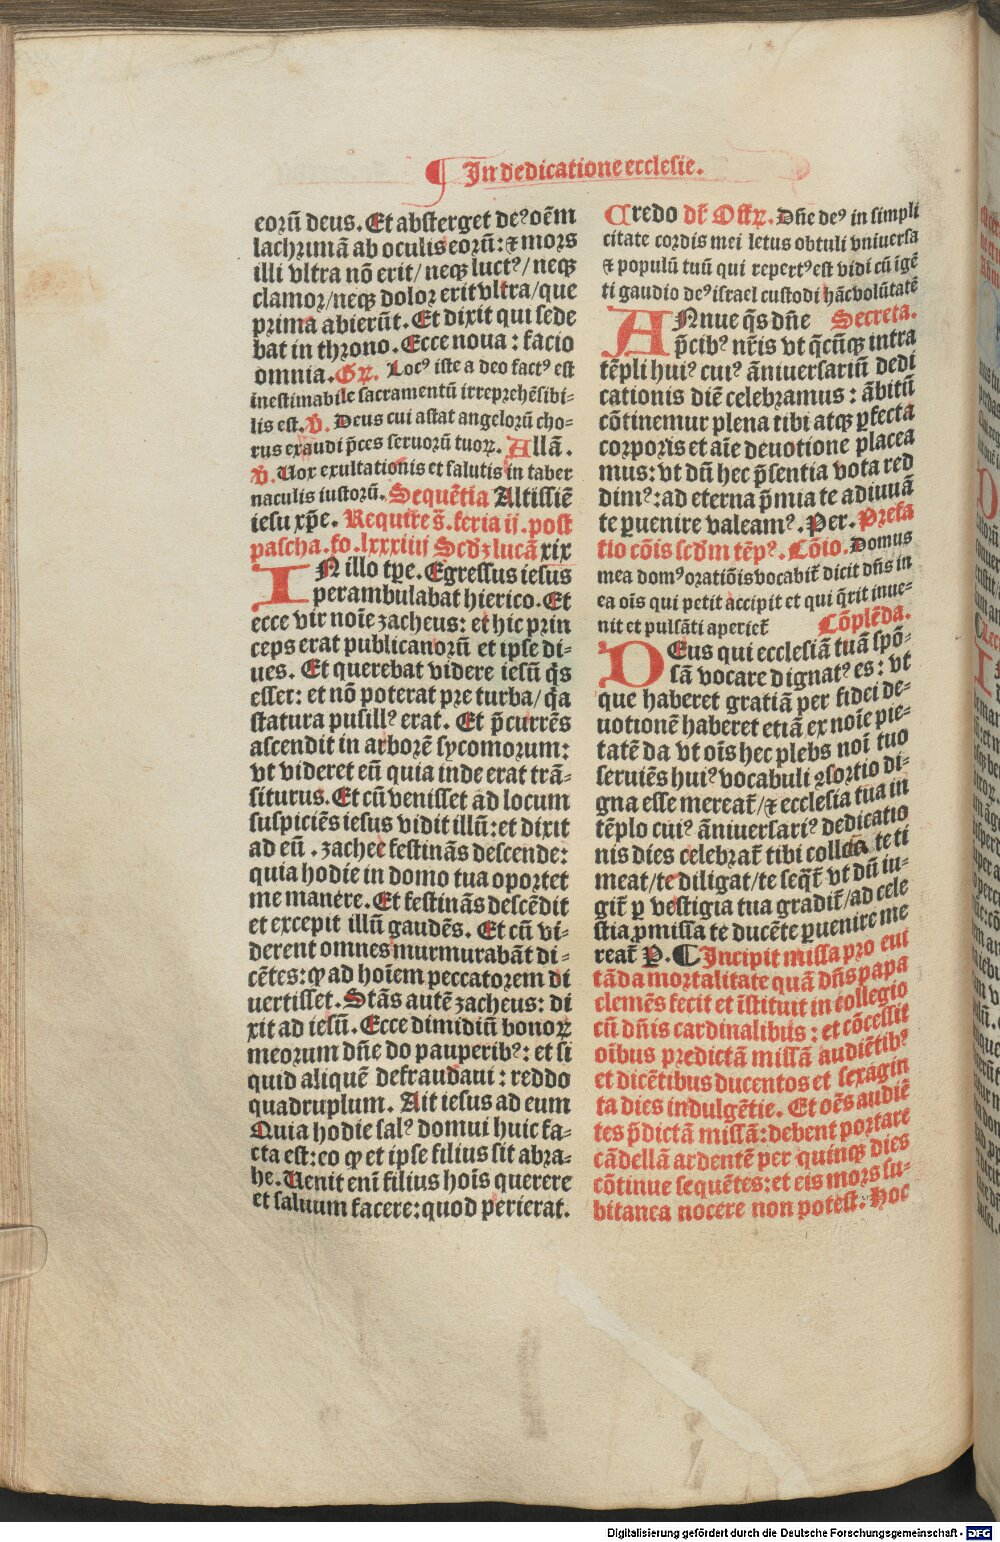 ¶ In dedicatione ecclesie.
eorū deus. Et absterget deꝰ oēm
lachrimā ab oculis eorū: ⁊ mors
illi vltra nō erit/ neqꝫ luctꝰ/ neqꝫ
clamor/ neqꝫ dolor erit vltra/ que
prima abierūt. Et dixit qui sede
bat in throno. Ecce noua: facio
omnia. Gꝛ. Locꝰ iste a deo factꝰ est
inestimabile sacramentū irreprehēsibi-
lis est. ℣. Deus cui astat angelorū cho-
rus exaudi p̄ces seruorū tuoꝝ. Allā.
℣. Uox exultationis et salutis in taber
naculis iustorū. Sequētia Altissiē
iesu xp̄e. Require s̄. feria ij. post
pascha. fo. lxxxiiij Scdꝫ lucā xix
IN illo tꝑe. Egressus iesus
perambulabat hierico. Et
ecce vir noīe zacheus: et hic prin
ceps erat publicanorū et ipse di-
ues. Et querebat videre iesū q̄s
esset: et nō poterat pre turba/ q̄a
statura pusillꝰ erat. Et p̄currēs
ascendit in arborē sycomorum:
vt videret eū quia inde erat trā-
siturus. Et cū venisset ad locum
suspiciēs iesus vidit illū: et dixit
ad eū . zachee festinās descende:
quia hodie in domo tua oportet
me manere. Et festinās descēdit
et excepit illū gaudēs. Et cū vi-
derent omnes murmurabāt di-
cētes: ꝙ ad hoīem peccatorem di
uertisset. Stās autē zacheus: di
xit ad iesū. Ecce dimidiū bonoꝝ
meorum dn̄e do pauperibꝰ: et si
quid aliquē defraudaui: reddo
quadruplum. Ait iesus ad eum
Quia hodie salꝰ domui huic fa-
cta est: eo ꝙ et ipse filius sit abra-
he. Uenit enī filius hoīs querere
et saluum facere: quod perierat.
Credo dr̄ Offꝝ. Dn̄e deꝰ in simpli
citate cordis mei letus obtuli vniuersa
⁊ populū tuū qui repertꝰ est vidi cū īgē
ti gaudio deꝰ israel custodi hāc volūtatē
ANnue q̄s dn̄e Secreta.
p̄cibꝰ nr̄is vt q̄cūqꝫ intra
tēpli huiꝰ cuiꝰ āniuersariū dedi
cationis diē celebramus: ābitū
cōtinemur plena tibi atqꝫ ꝑfecta
corporis et aīe deuotione placea
mus: vt dū hec p̄sentia vota red
dimꝰ: ad eterna p̄mia te adiuuā
te ꝑuenire valeamꝰ. Per. Prefa
tio cōis scdm tēpꝰ. Cōio. Domus
mea domꝰ oratiōis vocabit̄ dicit dn̄s in
ea oīs qui petit accipit et qui q̄rit inue-
nit et pulsāti aperiet̄ Cōplēda.
DEus qui ecclesiā tuā spō-
sā vocare dignatꝰ es: vt
que haberet gratiā per fidei de-
uotionē haberet etiā ex noīe pie-
tatē da vt oīs hec plebs noī tuo
seruiēs huiꝰ vocabuli ꝯsortio di-
gna esse mereat̄/ ⁊ ecclesia tua in
tēplo cuiꝰ āniuersariꝰ dedicatio
nis dies celebrat̄ tibi collecta te ti
meat/ te diligat/ te seq̄t̄ vt dū iu-
git̄ ꝑ vestigia tua gradit̄/ ad cele
stia ꝓmissa te ducēte ꝑuenire me
reat̄ P. ¶ Incipit missa pro eui
tāda mortalitate quā dn̄s papa
clemēs fecit et īstituit in collegio
cū dn̄is cardinalibus: et cōcessit
oībus predictā missā audiētibꝰ
et dicētibus ducentos et sexagin
ta dies indulgētie. Et oēs audiē
tes p̄dictā missā: debent portare
cādellā ardentē per quinqꝫ dies
cōtinue sequētes: et eis mors su-
bitanea nocere non potest. Hoc
Digitalisierung gefördert durch die Deutsche Forschungsgemeinschaft - DFG